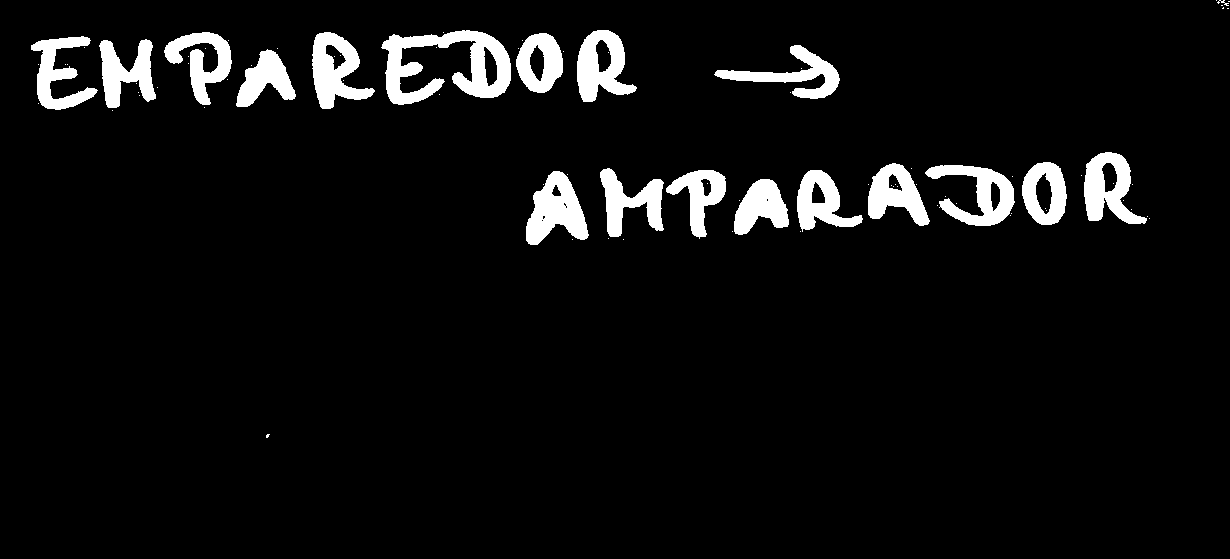 EMPAREDOR →
AMPARADOR